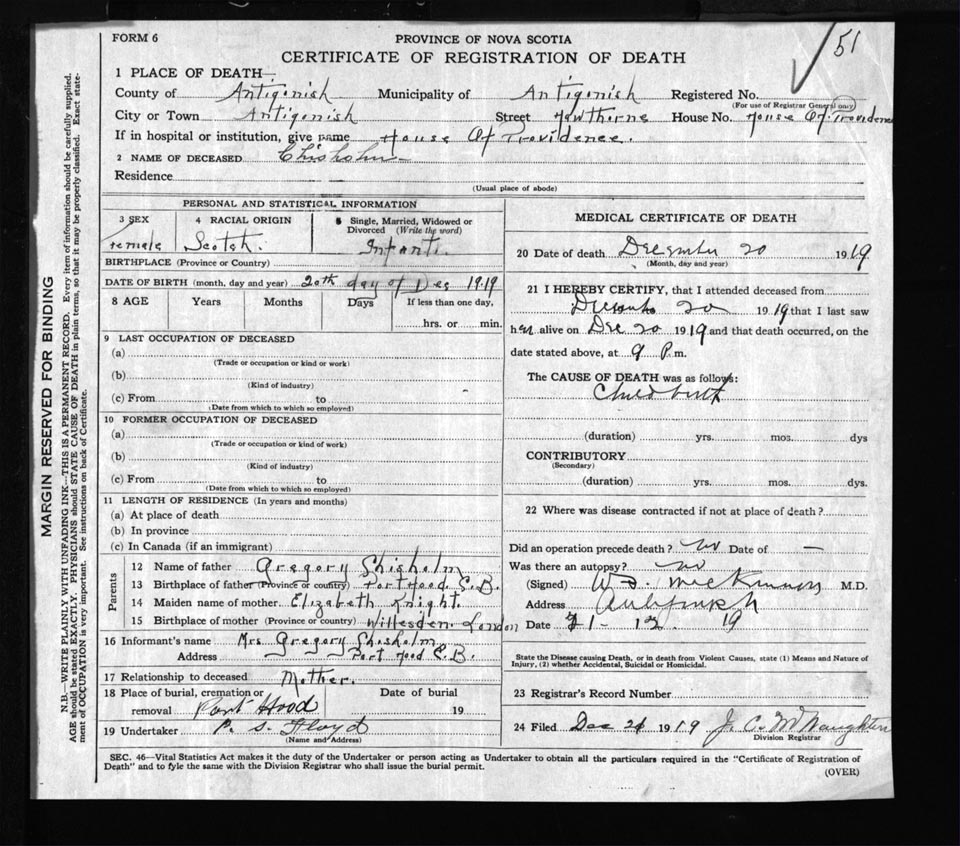 FORM 6
PROVINCE OF NOVA SCOTIA
51
CERTIFICATE OF REGISTRATION OF DEATH
1 PLACE OF DEATH—
County of Antigonish Municipality of Antigonish Registered No.
(For use of Registrar General only)
City or Town Antigonish Street Hawthorne House No. House Of Providence
If in hospital or institution, give name House Of Providence.
2 NAME OF DECEASED Chisholm
Residence
(Usual place of abode)
PERSONAL AND STATISTICAL INFORMATION
3 SEX 4 RACIAL ORIGIN 5 Single, Married, Widowed or Divorced (Write the word)
Female Scotch. Infant.
BIRTHPLACE (Province or Country)
DATE OF BIRTH (month, day and year) 20th day of Dec 1919
8 AGE Years Months Days If less than one day,
hrs. or min.
9 LAST OCCUPATION OF DECEASED
(a)
(Trade or occupation or kind or work)
(b)
(Kind of industry)
(c) From to
(Date from which to which so employed)
10 FORMER OCCUPATION OF DECEASED
(a)
(Trade or occupation or kind of work)
(b)
(Kind of industry)
(c) From to
(Date from which to which so employed)
11 LENGTH OF RESIDENCE (In years and months)
(a) At place of death
(b) In province
(c) In Canada (if an immigrant)
Parents
12 Name of father Gregory Shisholm
13 Birthplace of father (Province or country) Port Hood, C.B.
14 Maiden name of mother Elizabeth Knight.
15 Birthplace of mother (Province or country) Willesden London
16 Informant's name Mrs Gregory Shisholm
Address Port Hood C.B.
17 Relationship to deceased Mother.
18 Place of burial, cremation or Date of burial
removal Port Hood 19
19 Undertaker P. S. Floyd
(Name and Address)
MEDICAL CERTIFICATE OF DEATH
20 Date of death December 20 1919
(Month, day and year)
21 I HEREBY CERTIFY, that I attended deceased from
December 20 1919 that I last saw
her alive on Dec 20 1919 and that death occurred, on the
date stated above, at 9 P.m.
The CAUSE OF DEATH was as follows:
Childbirth
(duration) yrs. mos. dys
CONTRIBUTORY
(Secondary)
(duration) yrs. mos. dys.
22 Where was disease contracted if not at place of death?
Did an operation precede death? no Date of —
Was there an autopsy? no
(Signed) W. McKinnon M.D.
Address Antigonish
Date 21 - 12. 19
State the Disease causing Death, or in death from Violent Causes, state (1) Means and Nature of
Injury, (2) whether Accidental, Suicidal or Homicidal.
23 Registrar's Record Number
24 Filed Dec 21 1919 J. C. McNaughton
Division Registrar
SEC. 46—Vital Statistics Act makes it the duty of the Undertaker or person acting as Undertaker to obtain all the particulars required in the "Certificate of Registration of
Death" and to fyle the same with the Division Registrar who shall issue the burial permit.
(OVER)
MARGIN RESERVED FOR BINDING
N.B.—WRITE PLAINLY WITH UNFADING INK—THIS IS A PERMANENT RECORD. Every item of information should be carefully supplied.
AGE should be stated EXACTLY. PHYSICIANS should STATE CAUSE OF DEATH in plain terms, so that it may be properly classified. Exact state-
ment of OCCUPATION is very important. See instructions on back of Certificate.